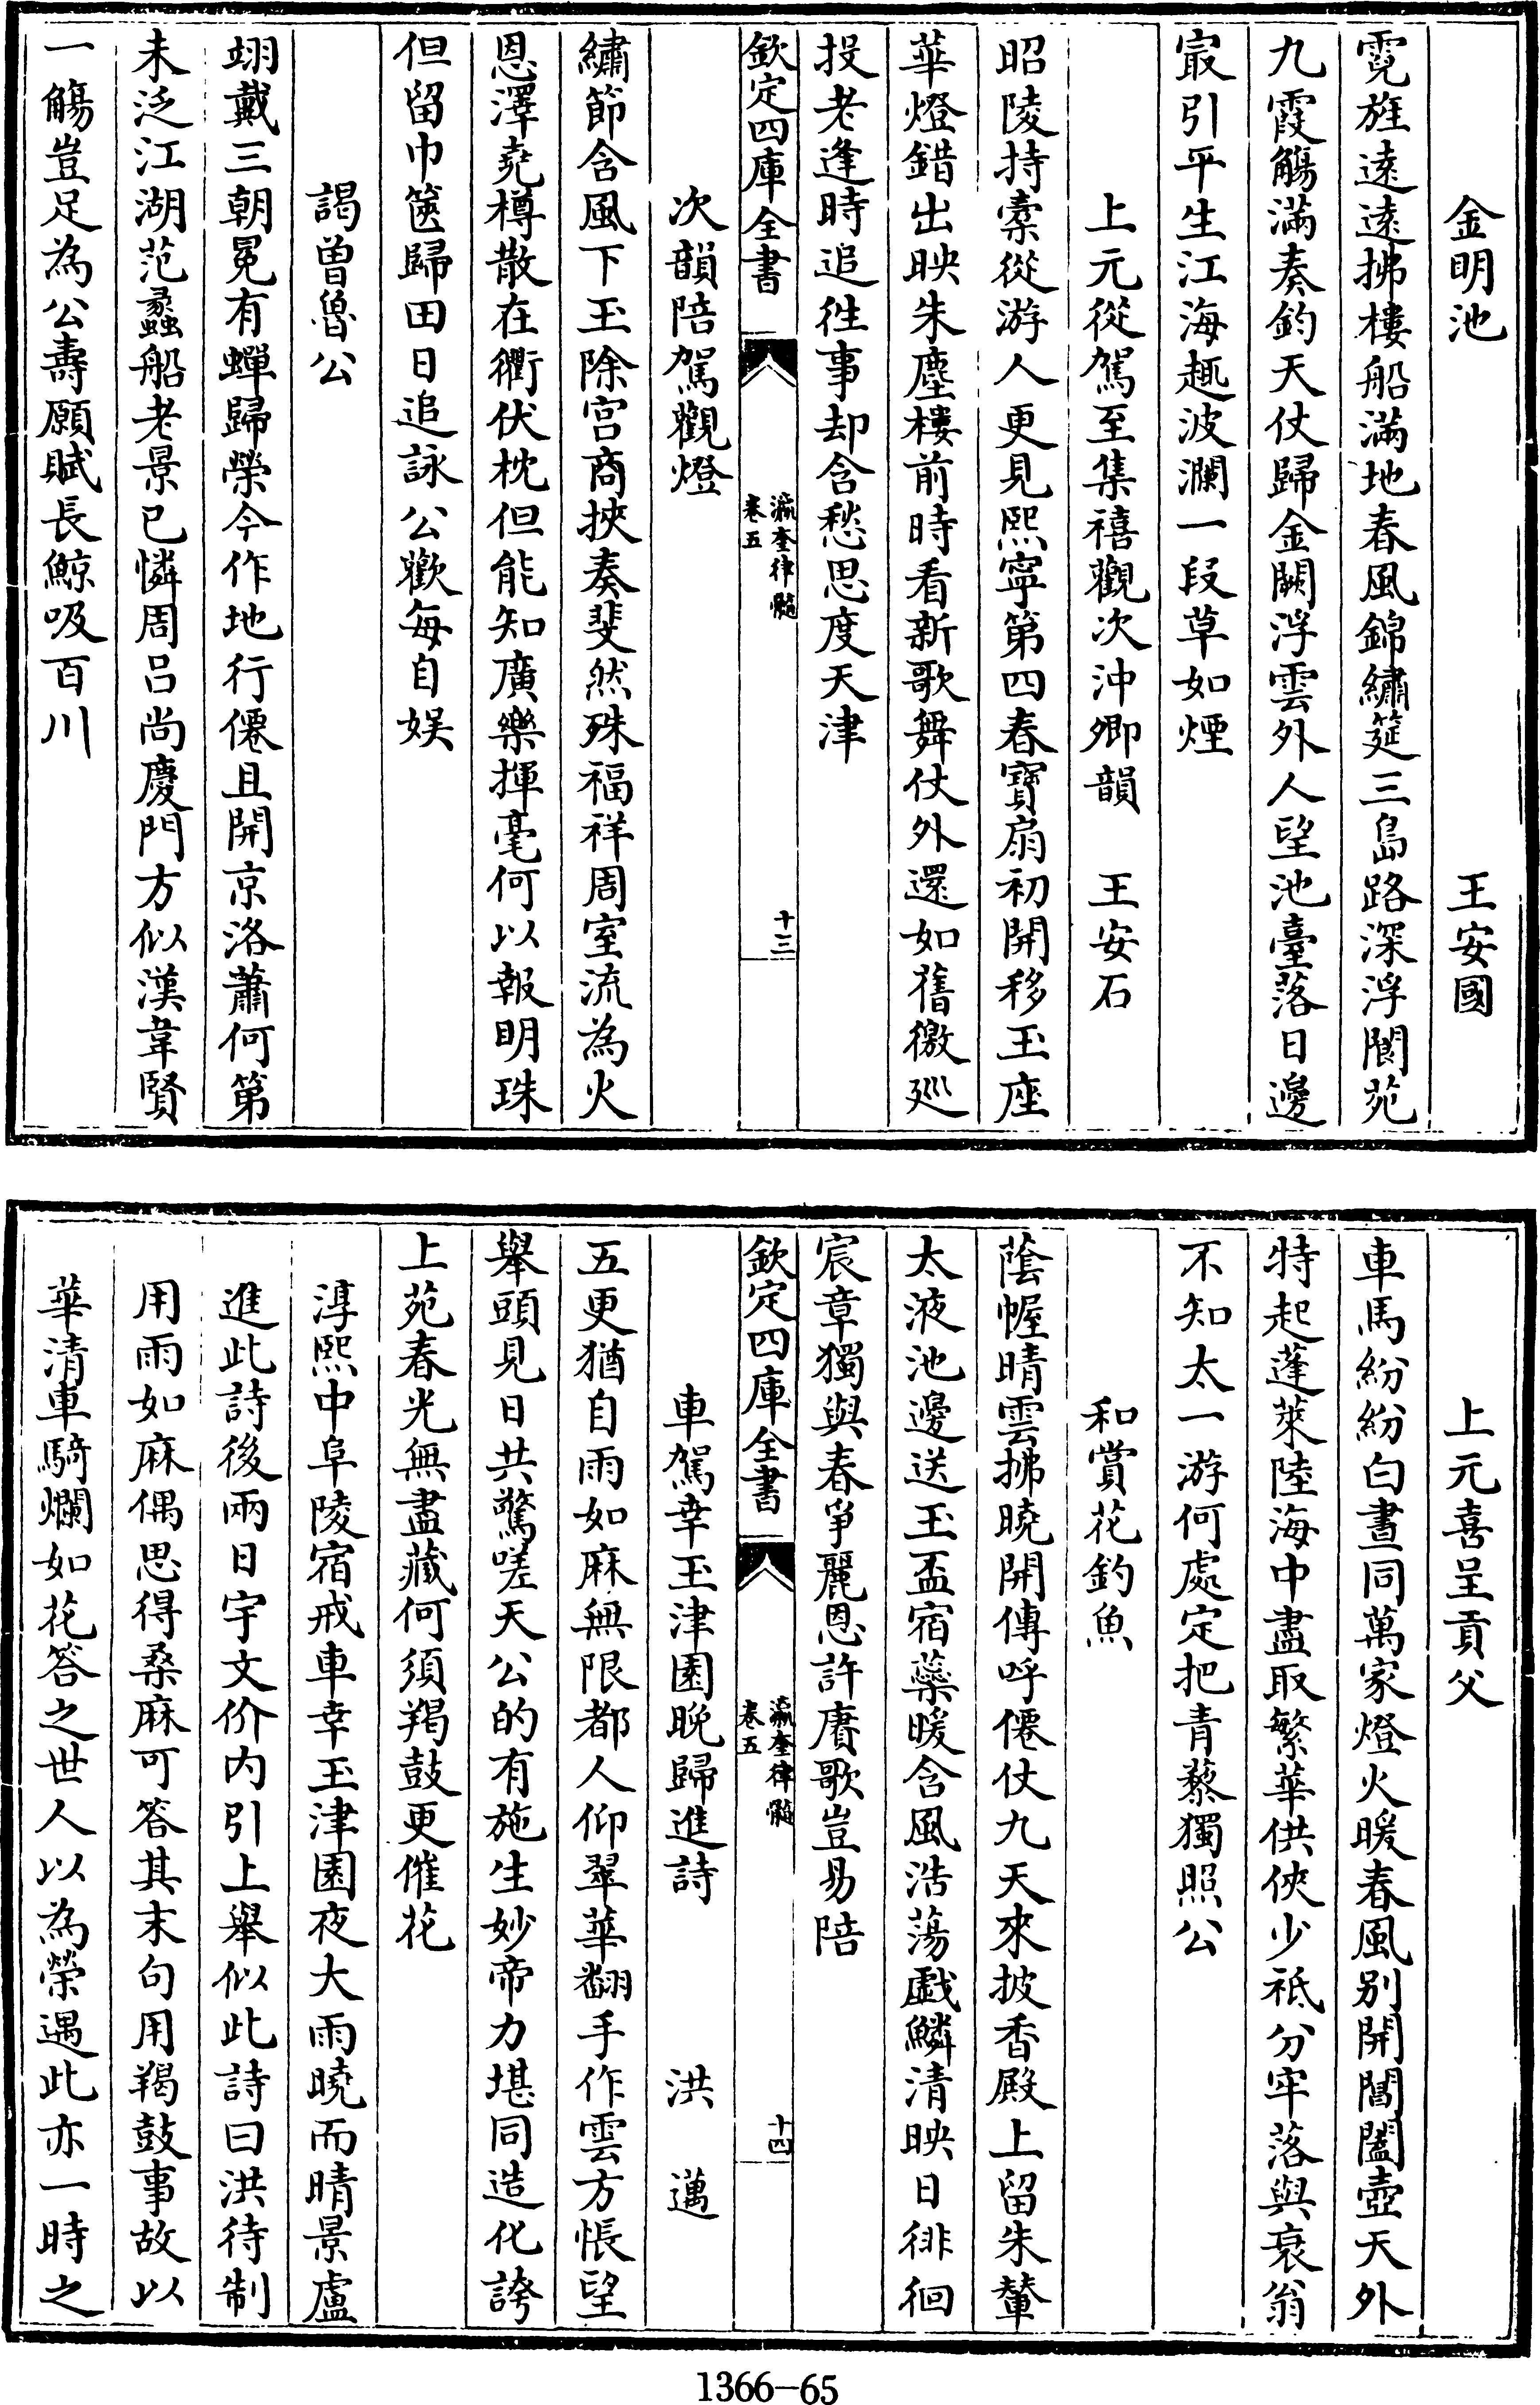 金明池　王安國
霓旌遠遠拂樓船滿地春風錦繡筵三島路深浮閬苑
九霞觴滿奏鈞天仗歸金闕浮雲外人望池臺落日邊
㝡引平生江海趣波瀾一段草如煙
上元從駕至集禧觀次沖卿韻　王安石
昭陵持橐從游人更見熙寧第四春寶扇初開移玉座
華燈錯出映朱塵樓前時看新歌舞仗外還如舊徼廵
投老逢時追徃事却含愁思度天津
欽定四庫全書　瀛奎律髓　卷五　十三
次韻陪駕觀燈
繡節含風下玉除宫商挾奏斐然殊福祥周室流為火
恩澤堯樽散在衢伏枕但能知廣樂揮毫何以報明珠
但留巾篋歸田日追詠公歡每自娱
謁曽魯公
翊戴三朝冕有蟬歸榮今作地行僊且開京洛蕭何第
未泛江湖范蠡船老景已憐周吕尚慶門方似漢韋賢
一觴豈足為公壽願賦長鯨吸百川
上元喜呈貢父
車馬紛紛白晝同萬家燈火暖春風别開閶闔壺天外
特起蓬萊陸海中盡取繁華供俠少祗分牢落與衰翁
不知太一游何處定把青藜獨照公
和賞花釣魚
蔭幄晴雲拂曉開傳呼僊仗九天來披香殿上留朱輦
太液池邊送玉盃宿蘂暖含風浩蕩戱鱗清映日徘徊
宸章獨與春爭麗恩許賡歌豈易陪
欽定四庫全書　瀛奎律髓　卷五　十四
車駕幸玉津園晚歸進詩　洪邁
五更猶自雨如麻無限都人仰翠華翻手作雲方悵望
舉頭見日共驚嗟天公的有施生妙帝力堪同造化誇
上苑春光無盡藏何須羯鼓更催花
淳熙中阜陵宿戒車幸玉津園夜大雨曉而晴景盧
進此詩後兩日宇文价内引上舉似此詩曰洪待制
用雨如麻偶思得桑麻可答其末句用羯鼓事故以
華清車騎爛如花答之世人以為榮遇此亦一時之
1366-65